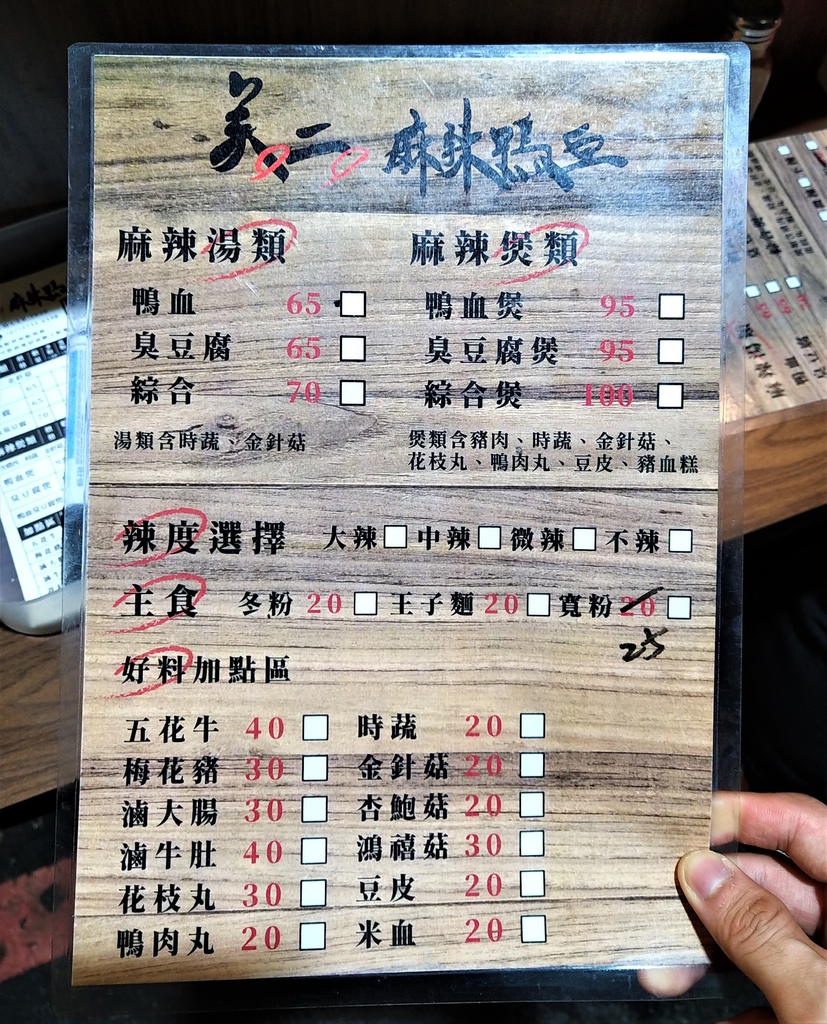 美二 麻辣鴨血
麻辣湯類
鴨血 65
臭豆腐 65
綜合 70
湯類含時蔬、金針菇
麻辣煲類
鴨血煲 95
臭豆腐煲 95
綜合煲 100
煲類含豬肉、時蔬、金針菇、
花枝丸、鴨肉丸、豆皮、豬血糕
辣度選擇 大辣 中辣 微辣 不辣
主食 冬粉 20 王子麵 20 寬粉 20
25
好料加點區
五花牛 40
梅花豬 30
滷大腸 30
滷牛肚 40
花枝丸 30
鴨肉丸 20
時蔬 20
金針菇 20
杏鮑菇 20
鴻禧菇 30
豆皮 20
米血 20